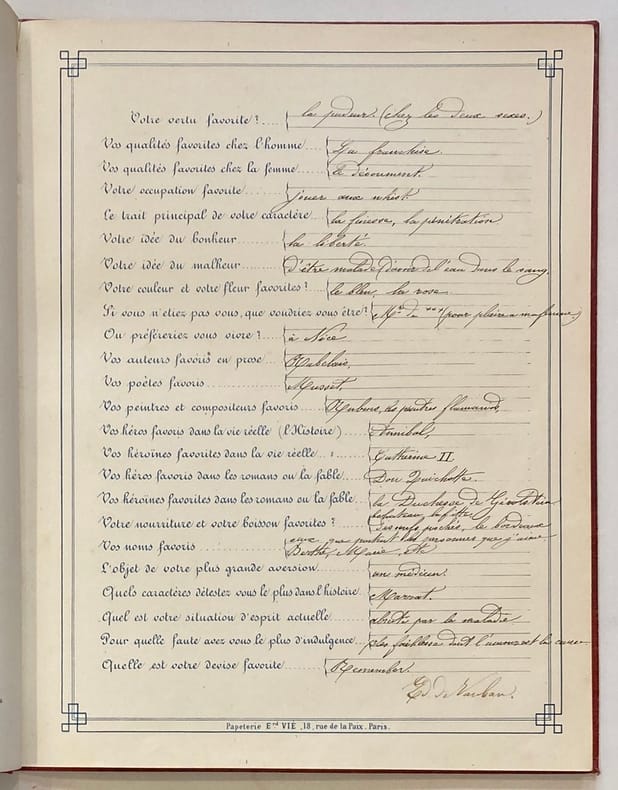 Votre vertu favorite? la pudeur. (chez les deux sexes.)
Vos qualités favorites chez l'homme La franchise.
Vos qualités favorites chez la femme le dévoument.
Votre occupation favorite jouer aux whist.
Le trait principal de votre caractère la finesse, la pénétration
Votre idée du bonheur la liberté.
Votre idée du malheur d'être malade d'avoir de l'eau dans le sang.
Votre couleur et votre fleur favorites? le bleu, la rose
Si vous n'étiez pas vous, que voudriez vous être? Mr de *** (pour plaire a ma femme)
Où préféreriez vous vivre? à Nice
Vos auteurs favoris en prose Rabelais,
Vos poètes favoris Musset,
Vos peintres et compositeurs favoris Rubens, les peintres flamands,
Vos héros favoris dans la vie réelle (l'Histoire) Annibal,
Vos héroïnes favorites dans la vie réelle Catherine II
Vos héros favoris dans les romans ou la fable Don Quichotte.
Vos héroïnes favorites dans les romans ou la fable la Duchesse de Gérolstein
Votre nourriture et votre boisson favorites? des oeufs pochés, le bordeaux
Vos noms favoris ceux que portent les personnes que j'aime
Berthe, Marie, etc
L'objet de votre plus grande aversion un médecin.
Quels caractères détestez vous le plus dans l'histoire Marat.
Quel est votre situation d'esprit actuelle par la maladie
Pour quelle faute avez vous le plus d'indulgence les faiblesses dont l'amour est la cause
Quelle est votre devise favorite Remember.
Ed. de
Papeterie End VIÉ, 18, rue de la Paix. Paris.